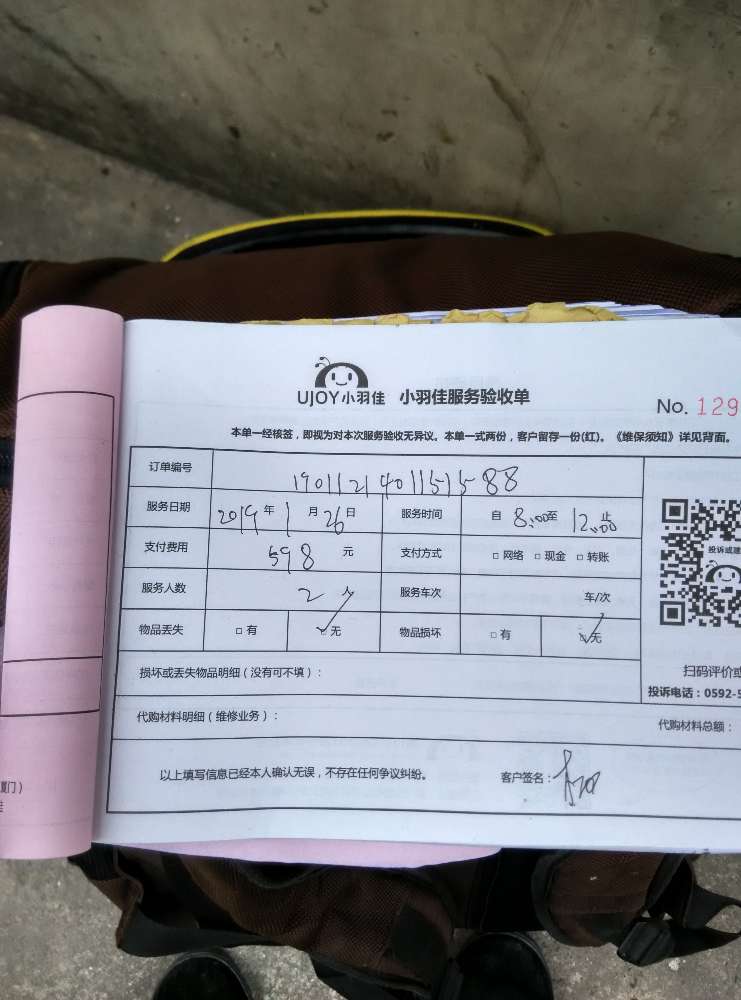 UJOY小羽佳 小羽佳服务验收单
No. 129
本单一经核签，即视为对本次服务验收无异议。本单一式两份，客户留存一份(红)。《维保须知》详见背面。
订单编号 1901121401151588
服务日期 2019 年 1 月 26 日 服务时间 自 8:00 至 12:00 止
投诉或建
支付费用 598 元 支付方式 □ 网络 □ 现金 □ 转账
服务人数 2 人 服务车次 车/次
物品丢失 □ 有 ✓ 无 物品损坏 □ 有 ✓ 无
扫码评价或
损坏或丢失物品明细（没有可不填）：
投诉电话：0592-5
代购材料明细（维修业务）： 代购材料总额：
以上填写信息已经本人确认无误，不存在任何争议纠纷。 客户签名：
厦门）